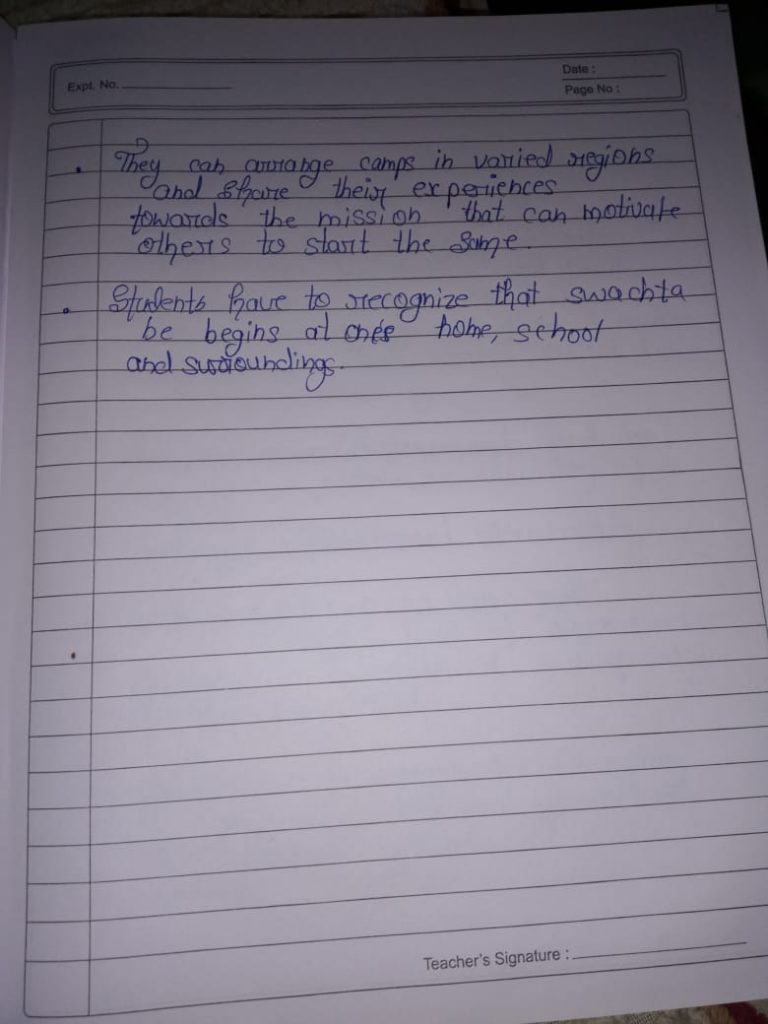 Expt. No.
Date :
Page No :
• They can arrange camps in varied regions
and share their experiences
towards the mission that can motivate
others to start the same.
• Students have to recognize that swachta
be begins at one's home, school
and surroundings.
Teacher's Signature :